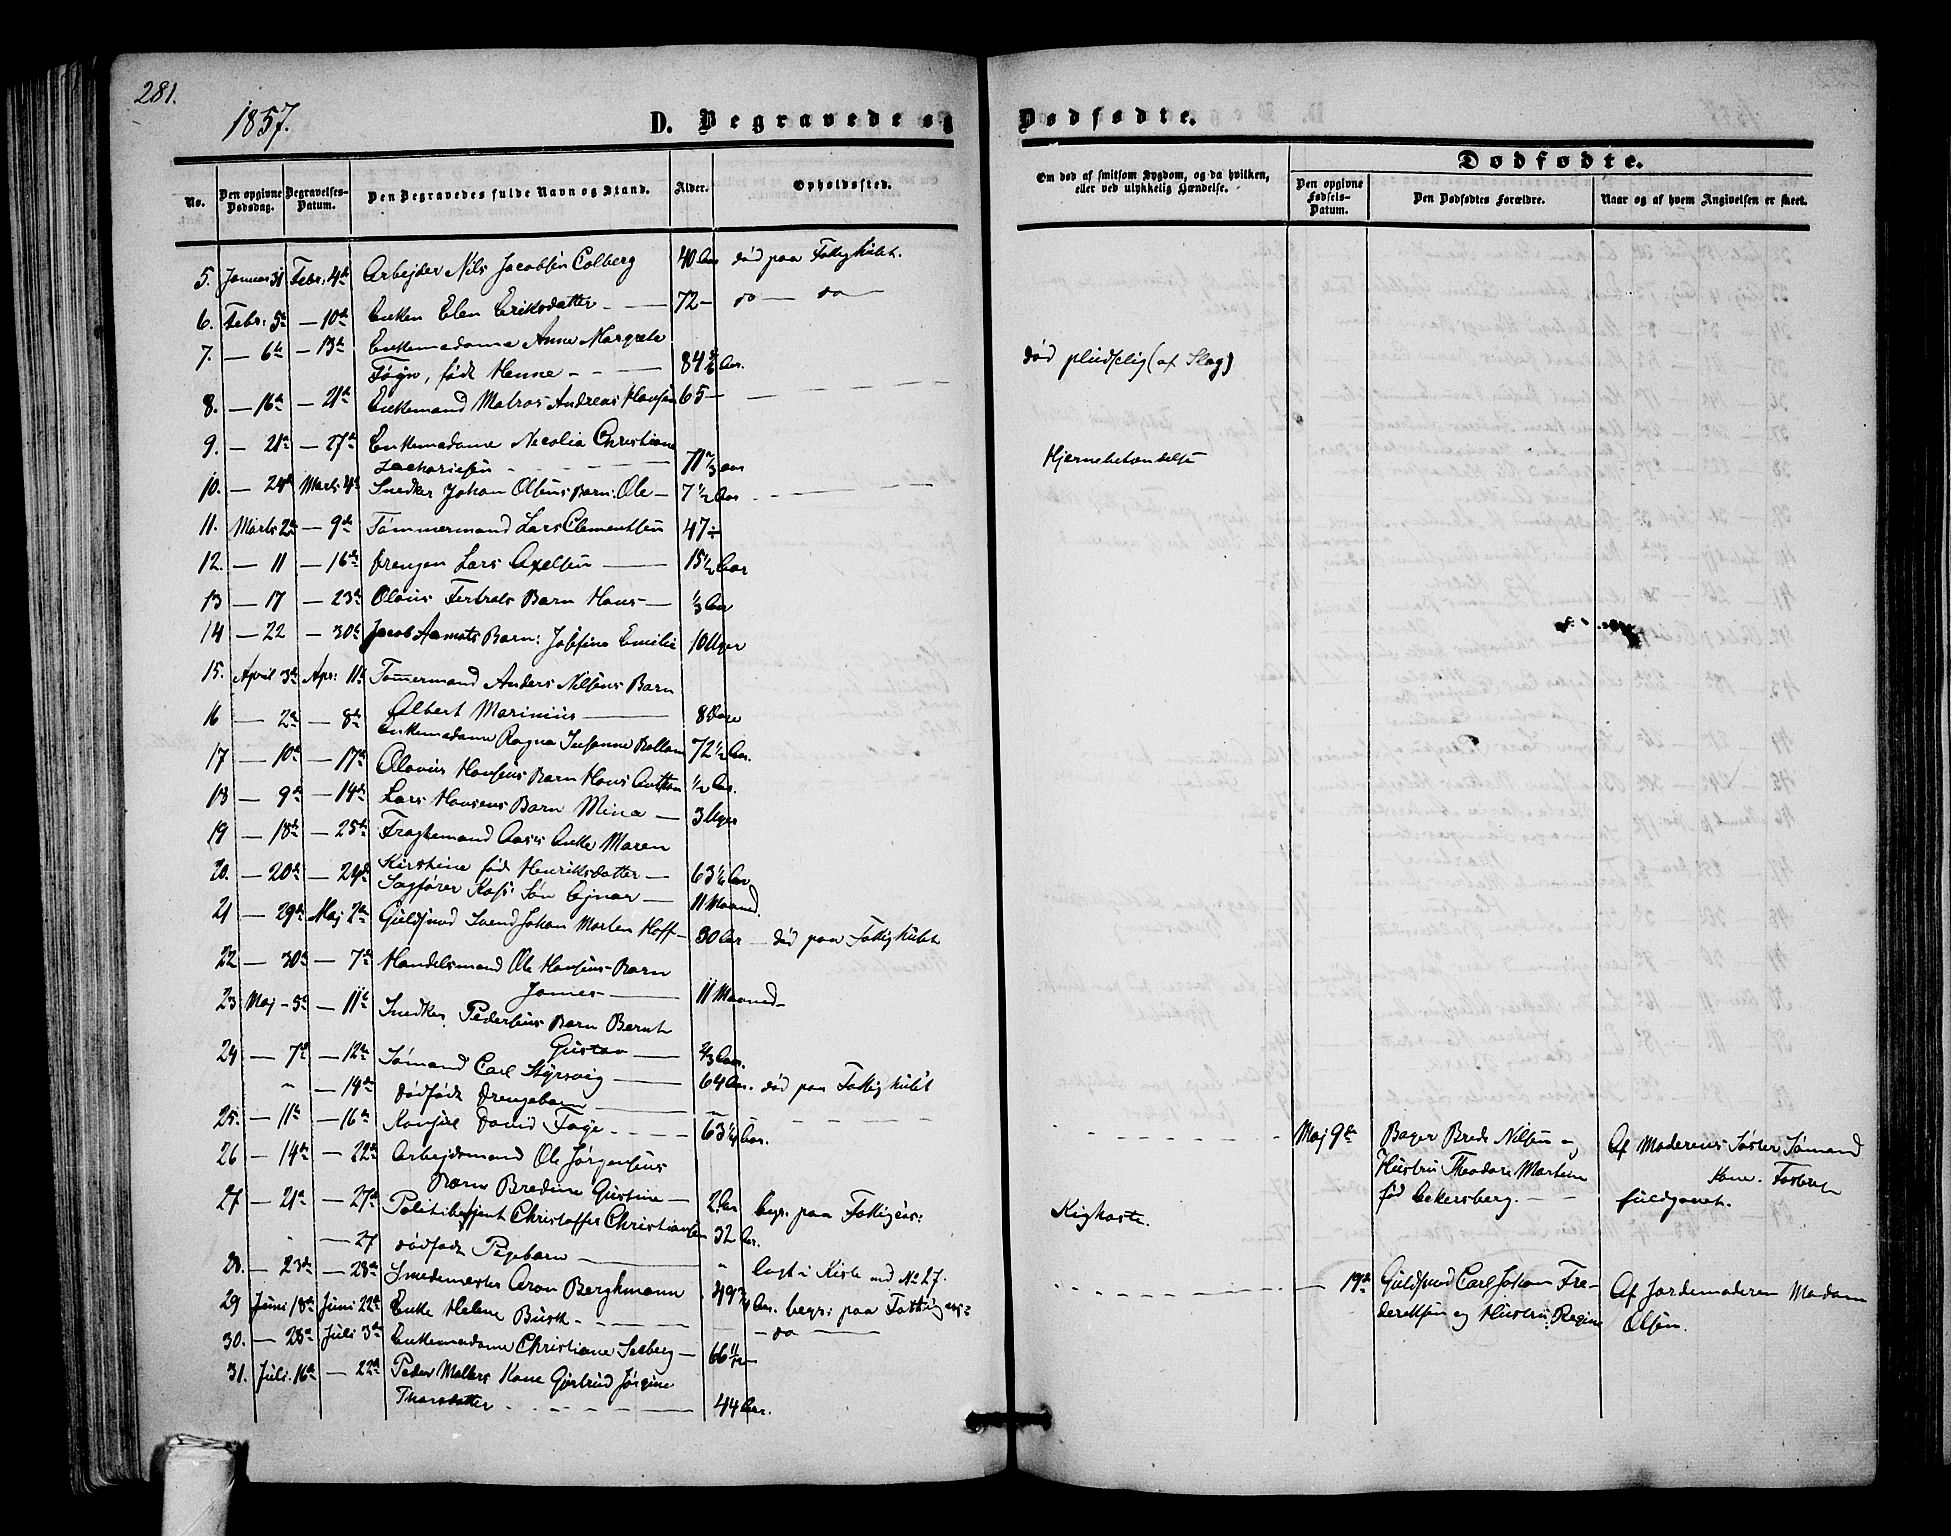 281.
1857.
D. Begravede og Dødfødte.
No.
Den opgivne Dødsdag.
Begravelses-Datum.
Den Begravedes fulde Navn og Stand.
Alder.
Opholdssted.
Om død af smitsom Sygdom, og da hvilken, eller ved ulykkelig Hændelse.
Dødfødte.
Den opgivne Fødsels-Datum.
Den Dødfødtes Forældre.
Naar og af hvem Angivelsen er skeet.
5. Januar 31 Febr: 4de Arbejder Nils Jacobsen Colberg 40 Aar død paa Fattighuset.
6. Febr: 5te — 10de Enken Elen Eriksdatter — 72 — do — do —
7. — 6te — 13de Enkemadame Anne Margrete
Føyn, født Henne — 84 Aar. død pludselig (af Slag)
8. — 16de — 21de Enkemand Matros Andreas Hansen 65 —
9. — 21de — 27de Enkemadame Nicolia Christiane
Zachariesen 71 2/3 Aar Hjernebetændelse
10. — 24de Marts 4de Snedker Johan Olsens Barn: Ole — 7 1/2 Aar
11. Marts 2den — 9de Tømmermand Lars Clementsen 47 —
12. — 11 — 16de Drengen Lars Axelsen — 15 1/2 Aar
13 — 17 — 23de Olaus Barn Hans — 1/3 Aar
14 — 22 — 30te Jacob Aamots Barn: Josefine Emilie 10 Uger
15. April 3de Apr: 11te Tømmermand Anders Nilsens Barn
Albert Marinius — 8 Dage
16 — 2den — 8de Enkemadame Ragna Susanne Bollam 72 1/2 Aar.
17 — 10de — 17de Olavus Hansens Barn Hans 1/2 Aar.
18 — 9de — 14de Lars Hansens Barn Mina — 3 Uger
19 — 18de — 25de Fragtemand Aases Enke Maren
Kirstine fød Henriksdatter — 63 1/2 Aar
20. — 20de — 24de Sagfører Søn Ejnar — 11 Maaned.
21 — 29de Maj 2den Guldsmed Svend Johan Morten Hoff — 30 Aar — død paa Fattighuset
22 — 30te — 7de Handelsmand Ole Hansens Barn
James — 11 Maaned —
23 Maj — 5te — 11te Snedker Pedersens Barn Bernt
Gustav — 2/3 Aar.
24 — 7de — 12te Sømand Carl Styrsvig — 64 Aar. død paa Fattighuset
" — 14de Dødfødt Drengebarn — Maj 9de Bager Brede Nilsen og
Hustru Theodore Martine
fød Eckersberg. —
Af Moderens Søster Sømand
Kone.
25. — 11te — 16de Konsul David Faye — 63 1/4 Aar.
26 — 14de — 22de Arbejdsmand Ole Jørgensens
Barn Bredine Gustine — 2 Aar begr: paa Kighoste.
27 — 21de — 27de Politibetjent Christoffer Christiansen 32 Aar.
" — 27 Dødfødt Pigebarn — " lagt i Kiste med No 27. — 19de Guldsmed Carl Johan Frederiksen og Hustru Regine Af Jordemoderen Madam
Olsen.
28. — 23de — 28de Smedemester Aron Berghmann 49 3/4 Aar. begr: paa
29 Juni 18de Juni 22de Enke Helene Busch — do —
30. — 28de Juli 3de Enkemadame Christiane Seeberg — 66 11/12 —
31. Juli 16de — 22de Peder Møllers Kone Gjertrud Jørgine
Thorsdatter — 44 Aar.